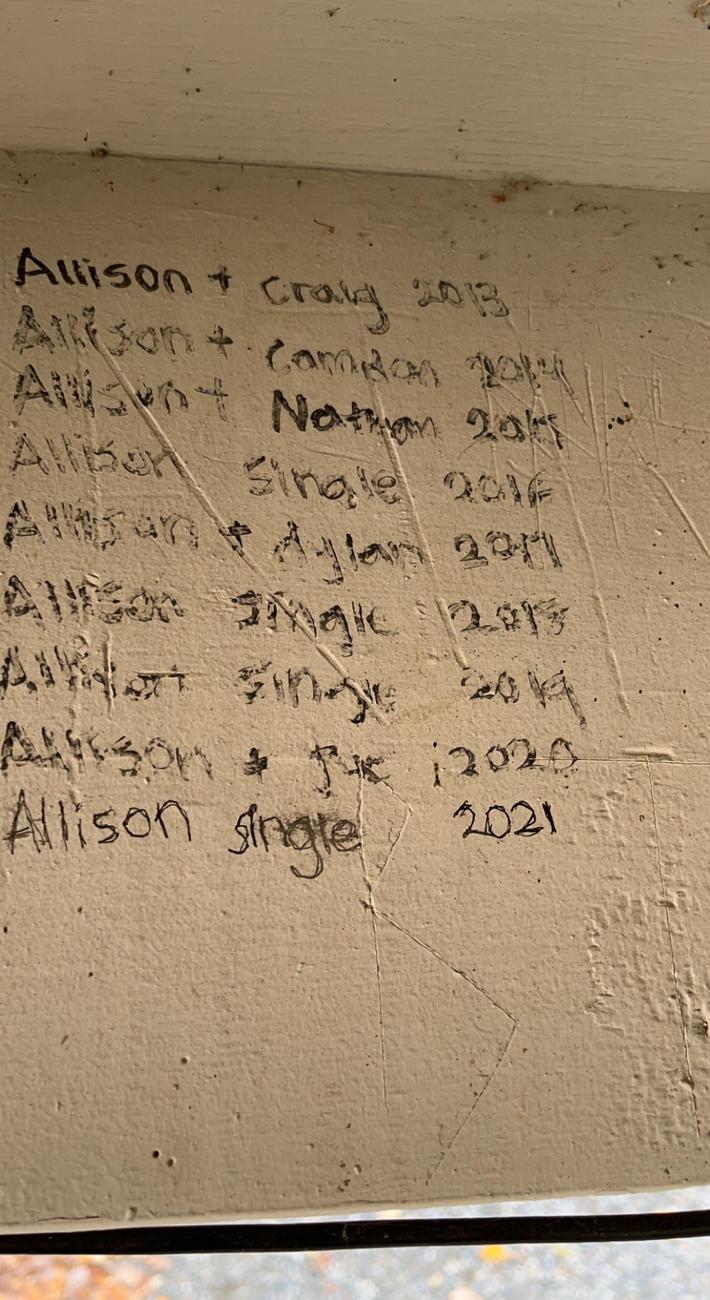 Allison + Craig 2013
Allison + Camdon 2014
Allison + Nathan
Allison Single 2016
Allison + dylan 2017
Allison Single 2018
Allison Single 2019
Allison + 2020
Allison single 2021